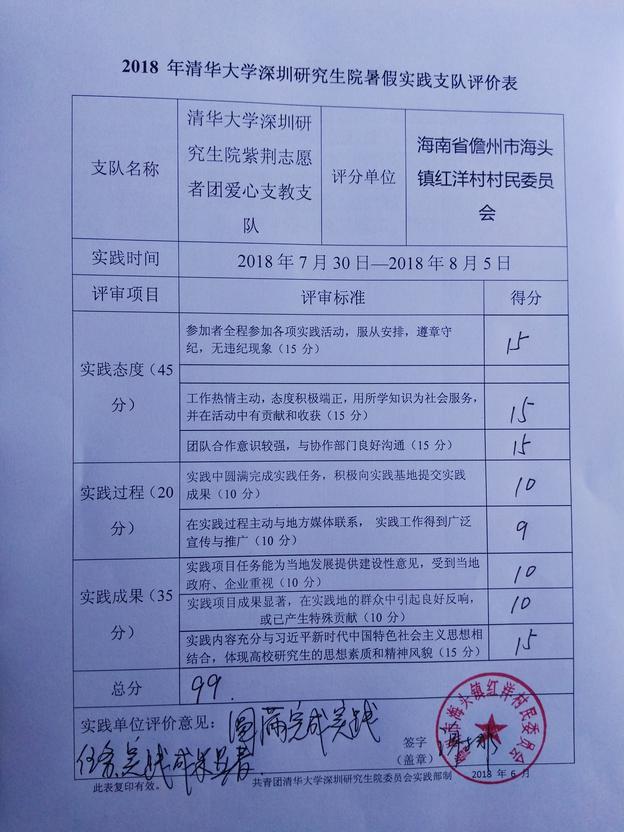 2018 年清华大学深圳研究生院暑假实践支队评价表
支队名称
清华大学深圳研
究生院紫荆志愿
者团爱心支教支
队
评分单位
海南省儋州市海头
镇红洋村村民委员
会
实践时间
2018 年 7 月 30 日—2018 年 8 月 5 日
评审项目
评审标准
得分
实践态度（45
分）
参加者全程参加各项实践活动，服从安排，遵章守
纪，无违纪现象（15 分）
15
工作热情主动，态度积极端正，用所学知识为社会服务，
并在活动中有贡献和收获（15 分）
15
团队合作意识较强，与协作部门良好沟通（15 分）
15
实践过程（20
分）
实践中圆满完成实践任务，积极向实践基地提交实践
成果（10 分）
10
在实践过程主动与地方媒体联系， 实践工作得到广泛
宣传与推广（10 分）
9
实践成果（35
分）
实践项目任务能为当地发展提供建设性意见，受到当地
政府、企业重视（10 分）
10
实践项目成果显著，在实践地的群众中引起良好反响，
或已产生特殊贡献（10 分）
10
实践内容充分与习近平新时代中国特色社会主义思想相
结合，体现高校研究生的思想素质和精神风貌（15 分）
15
总分
99.
实践单位评价意见：圆满完成实践
任务，实践成果显著.
签字
（盖章）
市海头镇红洋村民委员会
2018 年 6 月
此表复印有效。
共青团清华大学深圳研究生院委员会实践部制